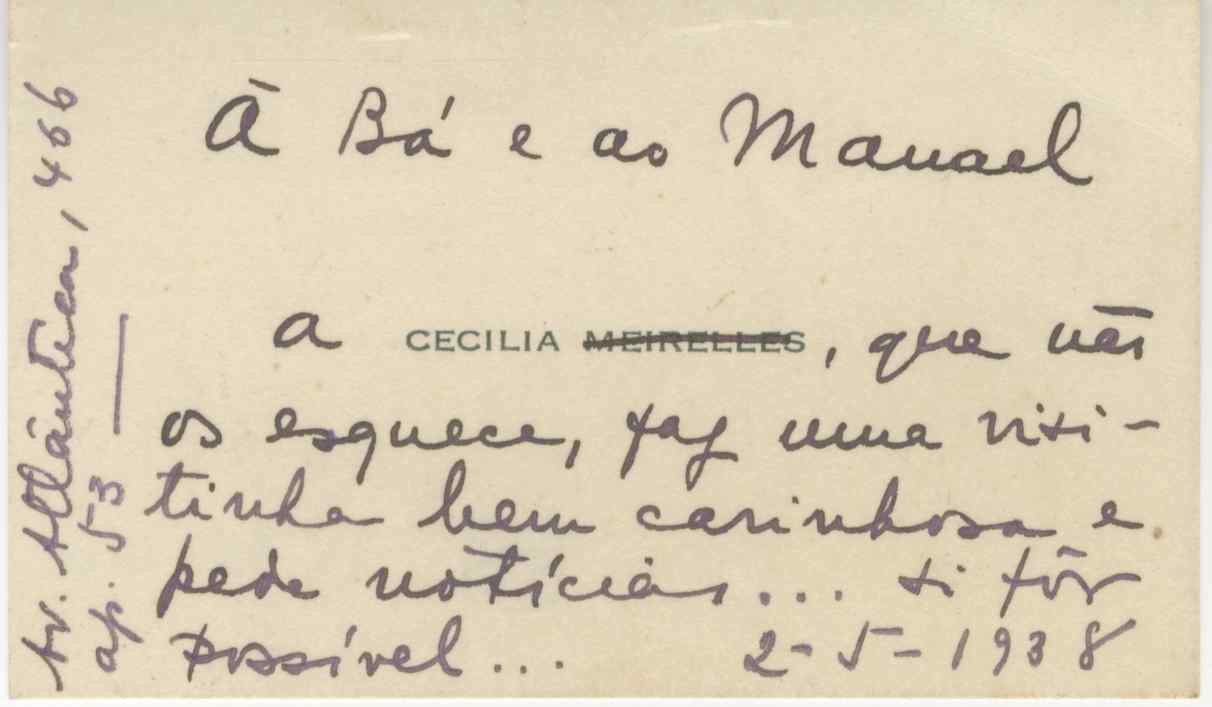 À Bá e ao Manuel
a CECILIA MEIRELLES, que não
os esquece, faz uma visi-
tinha bem carinhosa e
pede notícias... si fôr
possível... 2-5-1938
Av. Atlântica, 466
ap. 53